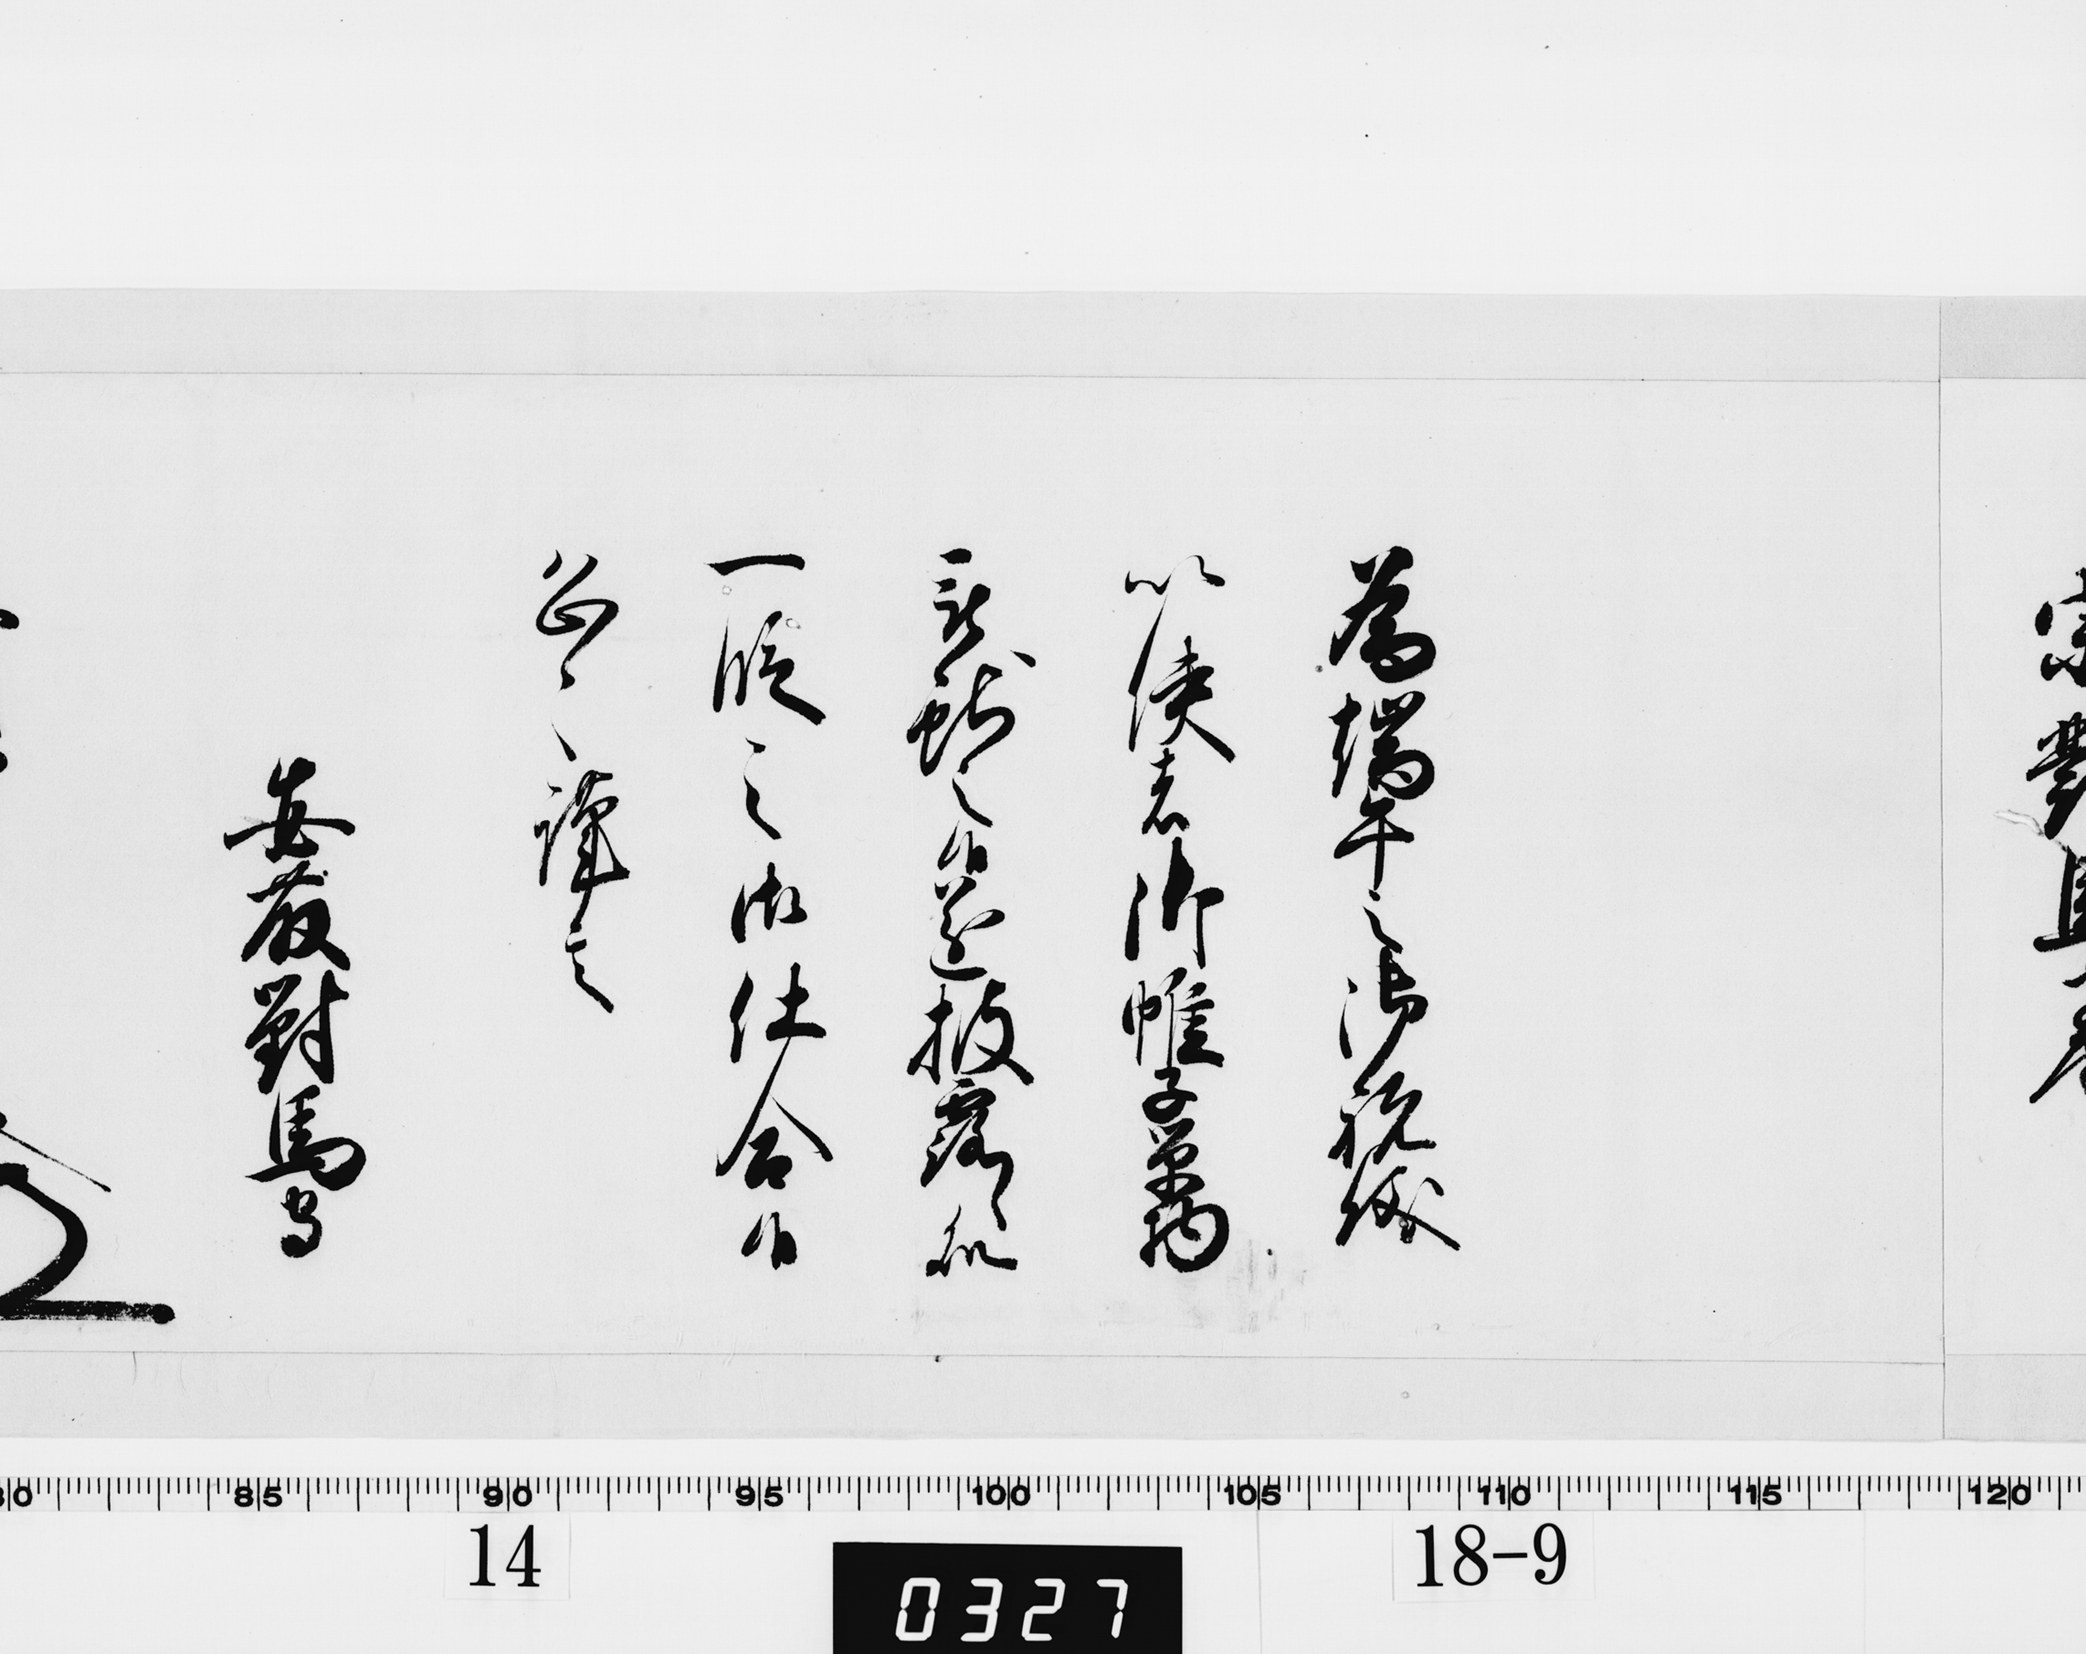 為端午之御祝儀
以使者御帷子單物
被獻之候遂披露処
一段之御仕合候
恐々謹言
安藤對馬守
80 85 90 95 100 105 110 115 120
14
18-9
0327